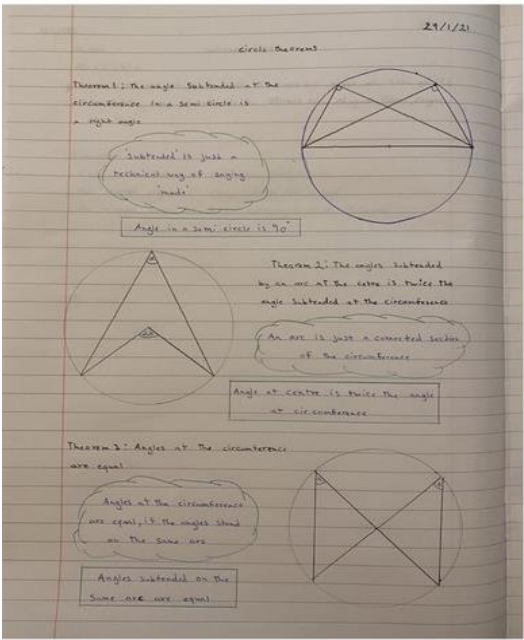 29/1/21
circle theorems
Theorem 1: The angle subtended at the
circumference in a semi circle is
a right angle
'Subtended' is just a
technical way of saying
'made'
Angle in a semi circle is 90°
Theorem 2: The angles subtended
by an arc at the centre is twice the
angle subtended at the circumference
An arc is just a connected section
of the circumference
Angle at centre is twice the angle
at circumference
Theorem 3: Angles at the circumference
are equal
Angles at the circumference
are equal, if the angles stand
on the same arc
Angles subtended on the
same arc are equal